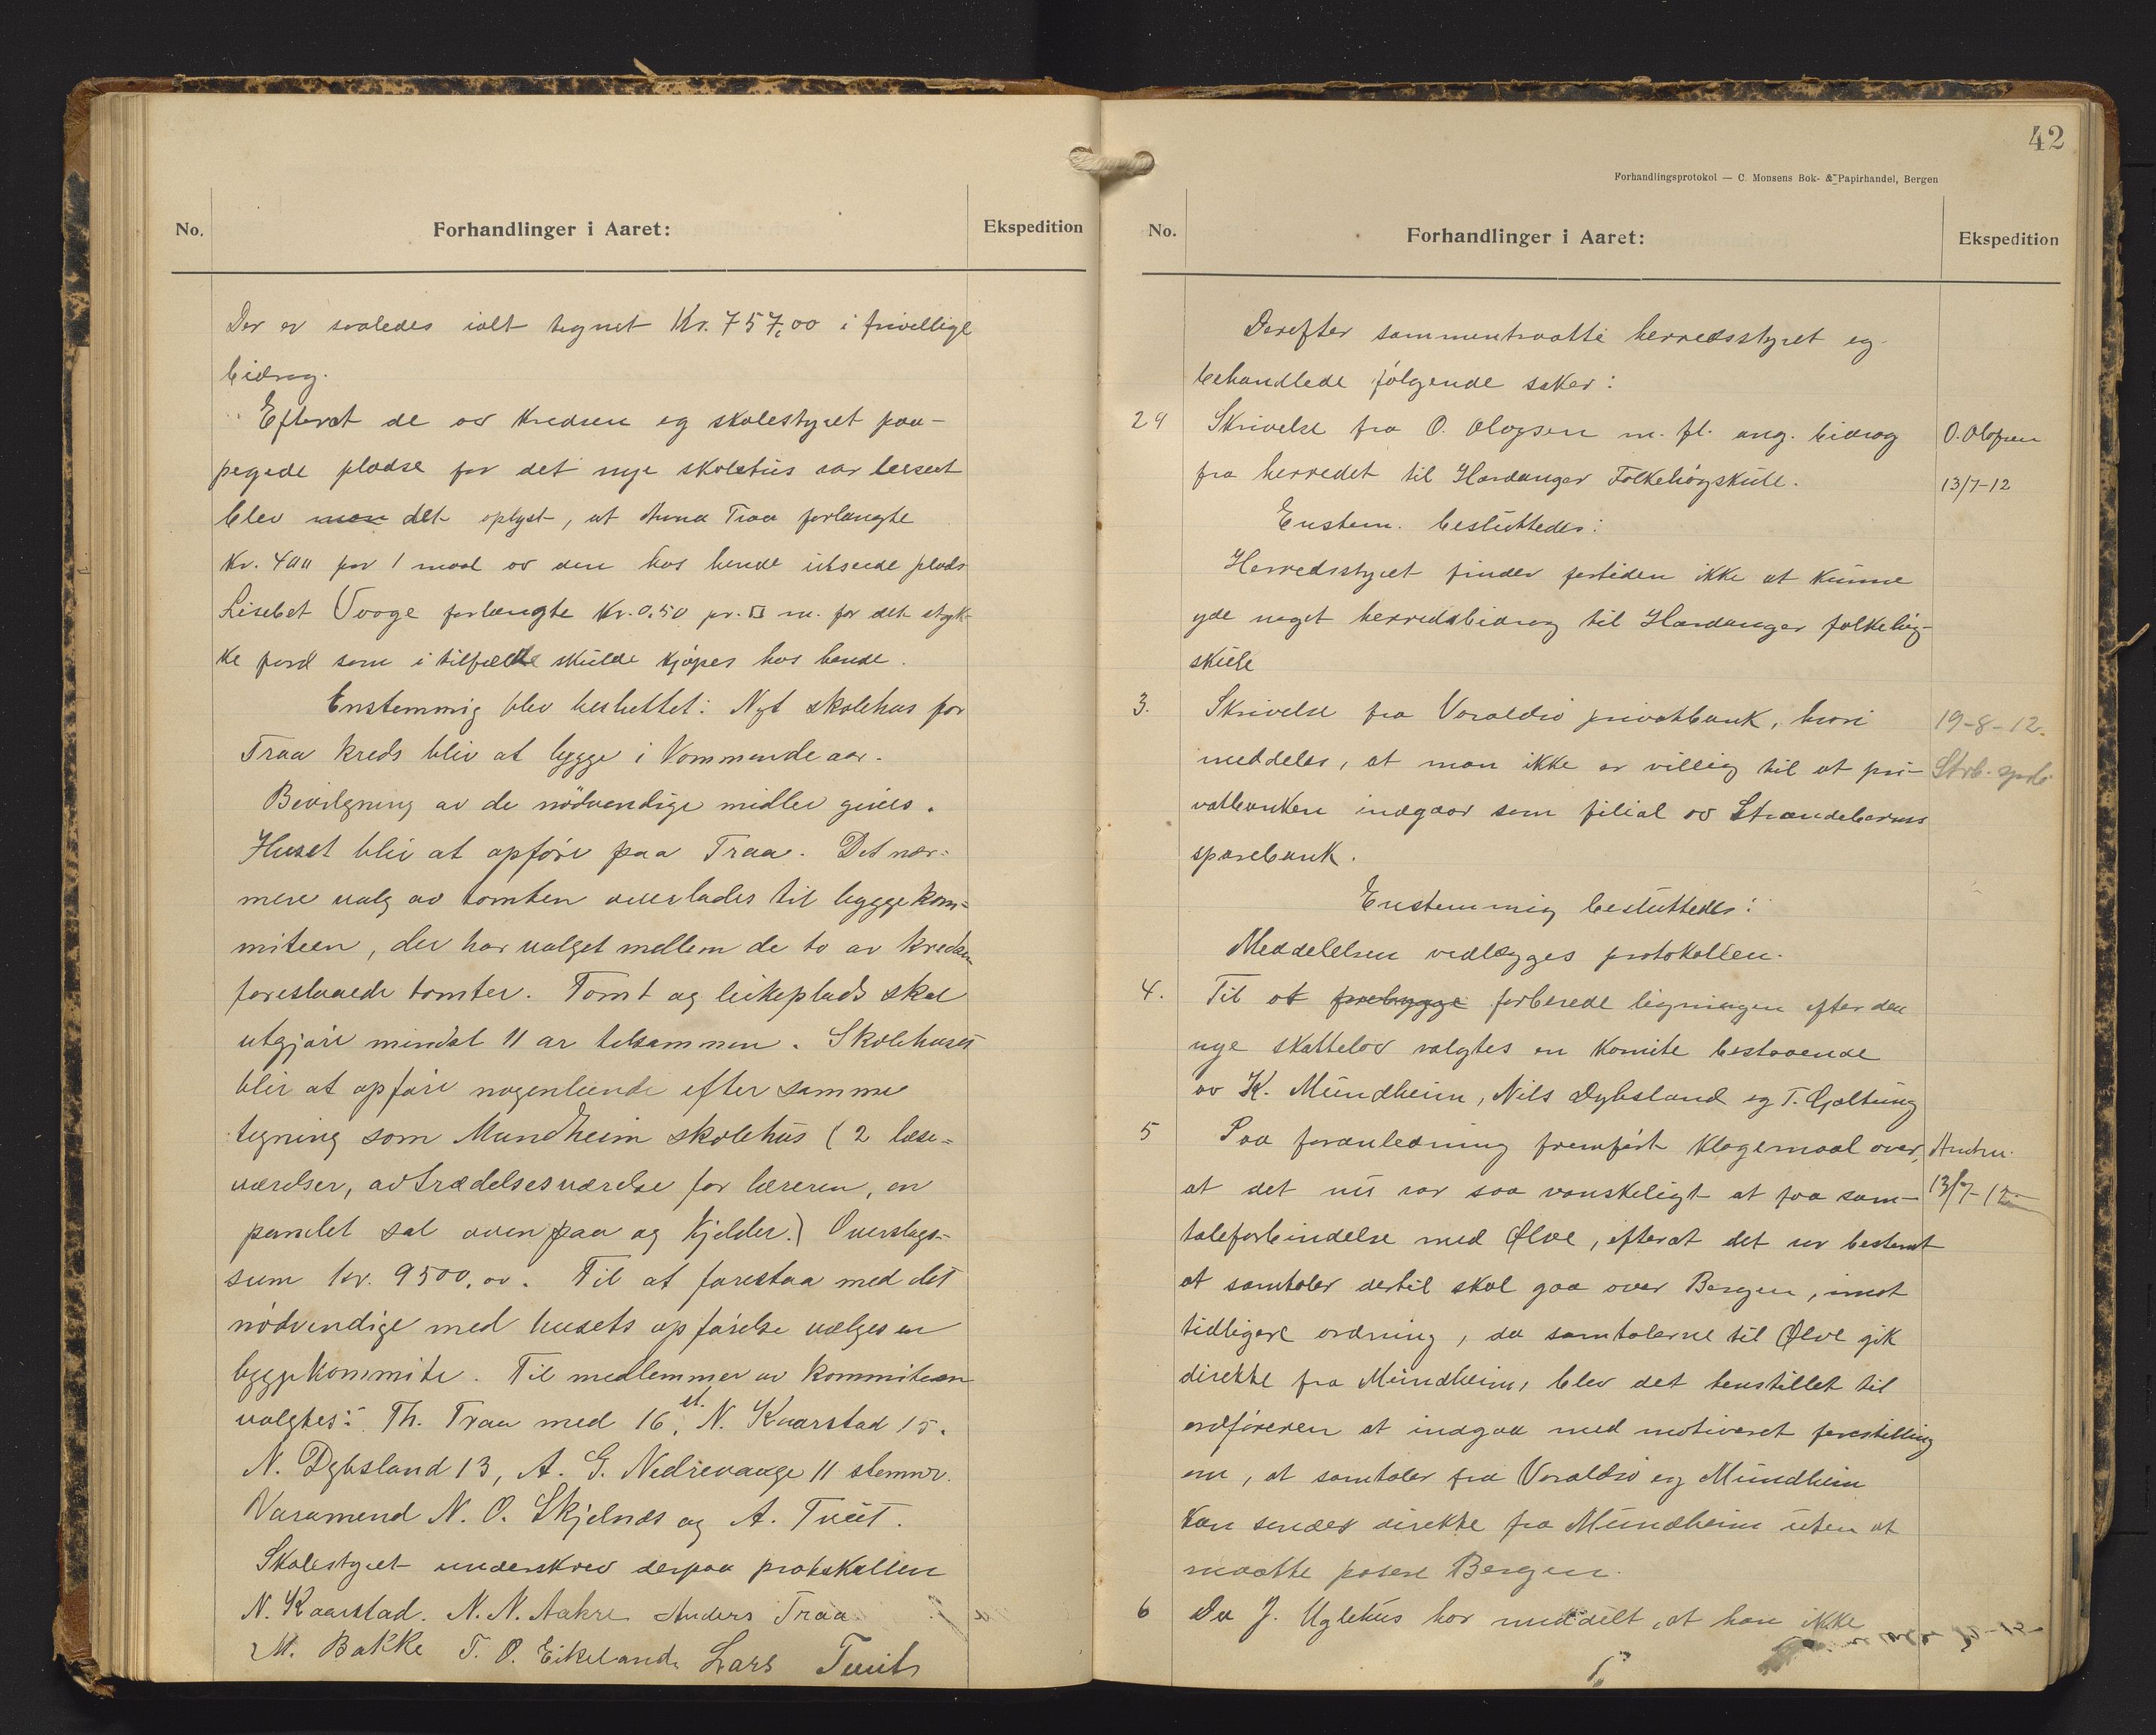 No.
Forhandlinger i Aaret:
Ekspedition
Der er saaledes ialt tegnet Kr. 757,00 i frivillige
bidrag.
Efterat de av kredsen og skolestyret paa-
pegede pladse for det nye skolehus var beseet
blev det oplyst, at Anna Traa forlangte
Kr. 400 for 1 maal av den hos hende utseede plads
Lisebet Vaage forlangte Kr. 0,50 pr. □ m. for det styk-
ke jord som i tilfælde skulde kjøpes hos hende.
Enstemmig blev besluttet: Nyt skolehus for
Traa kreds blir at bygge i kommende aar.
Bevilgning av de nödvendige midler gives.
Huset blir at opföre paa Traa. Det nær-
mere valg av tomten overlades til byggekom-
miteen, der har valget mellem de to av kredsen
foreslaaede tomter. Tomt og leikeplads skal
utgjøre mindst 11 ar tilsammen. Skolehuset
blir at opföre nogenlunde efter samme
tegning som Mundheim skolehus (2 læse-
værelser, avtrædelsesværelse for læreren, en
panelet sal ovenpaa og kjelder.) Overslags-
sum kr. 9500,00. Til at forestaa med det
nödvendige med husets opförelse vælges en
byggekommite. Til medlemmer av kommiteen
valgtes: Th. Traa med 16 st. N. Kaarstad 15.
N. Dybsland 13, A. G. Nedrevaage 11 stemmer.
Varamend N. O. Skjelnes og A. Tveit.
Skolestyret underskrev derpaa protokollen
N. Kaarstad. N. N. Aakre Anders Traa
M. Bakke T. O. Eikeland Lars Tveit
42
Forhandlingsprotokol — C. Monsens Bok- & Papirhandel, Bergen
No.
Forhandlinger i Aaret:
Ekspedition
Derefter sammentraatte herredsstyret og
behandlede følgende saker:
29 Skrivelse fra O. Olafsen m. fl. ang. bidrag O. Olafsen
fra herredet til Hardanger Folkehøgskule. 13/7-12
Enstem. besluttedes:
Herredsstyret finder fortiden ikke at kunne
yde noget herredsbidrag til Hardanger folkehøg-
skule
3. Skrivelse fra Varaldsö privatbank, hvori 19-8-12.
meddeles, at man ikke er villig til at pri- Strb. spb.
vatbanken indgaar som filial av Strandebarms
sparebank.
Enstemmig besluttedes:
Meddelelsen vedlægges protokollen.
4. Til at forebygge forberede ligningen efter den
nye skattelov valgtes en komite bestaaende
av K. Mundheim, Nils Dybsland og T. Gjeltung
5 Paa foranledning fremført klagemaal over,
at det nu var saa vanskeligt at faa sam- 13/7-12
taleforbindelse med Ølve, efterat det er bestemt
at samtaler dertil skal gaa over Bergen, imot
tidligere ordning, da samtalerne til Ølve gik
direkte fra Mundheim, blev det henstillet til
ordføreren at indgaa med motiveret forestilling
om, at samtaler fra Varaldsö og Mundheim
kan sendes direkte fra Mundheim uten at
maatte passere Bergen.
6 Da J. Uglehus har meddelt, at han ikke